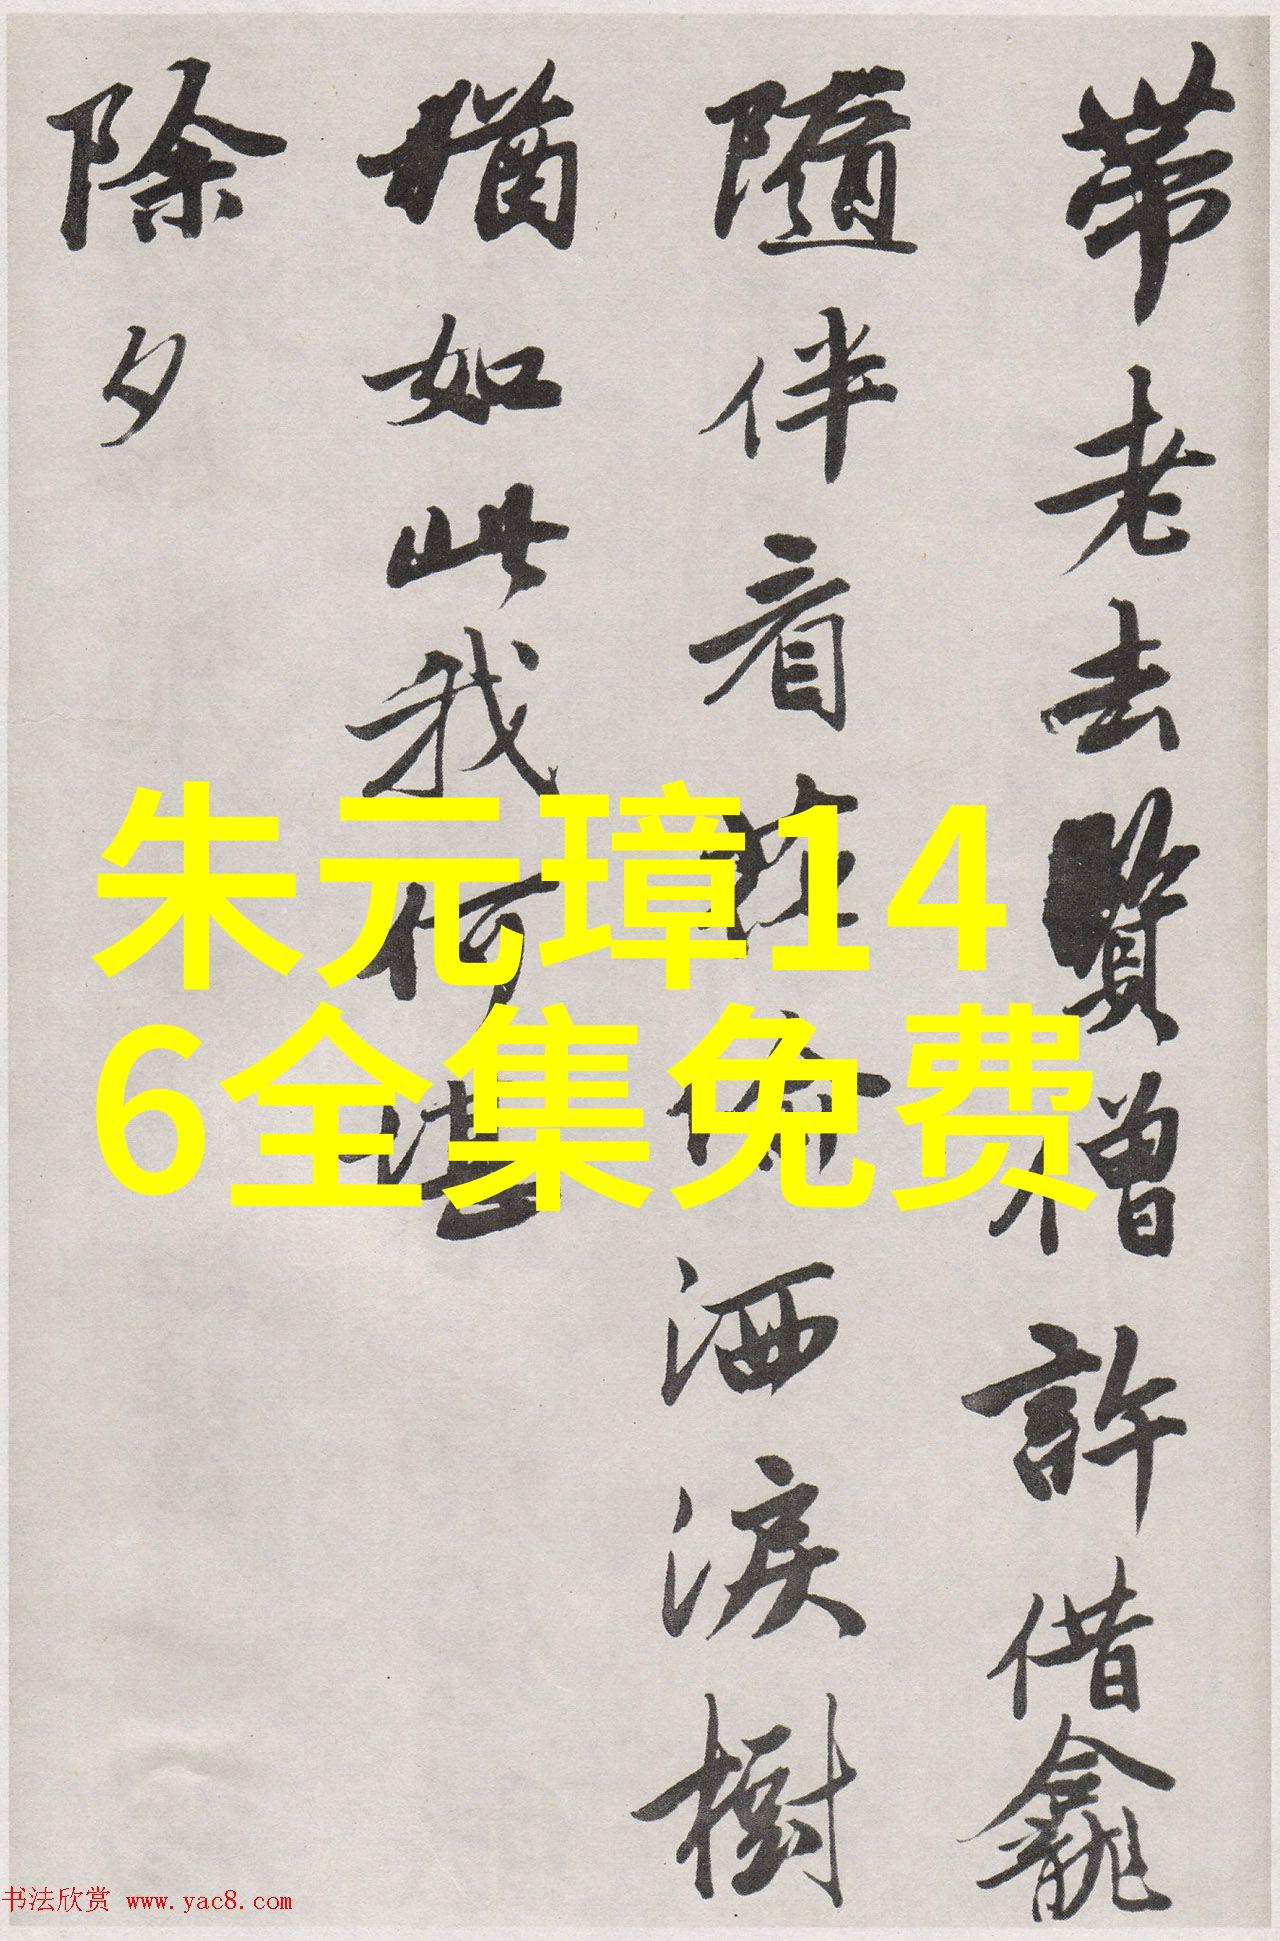 帶老去賢僧許借龕
隨伴看洒淚樹
猶如此我何堪
除夕
朱元璋14
6全集免费
书法欣赏 www.yac8.com